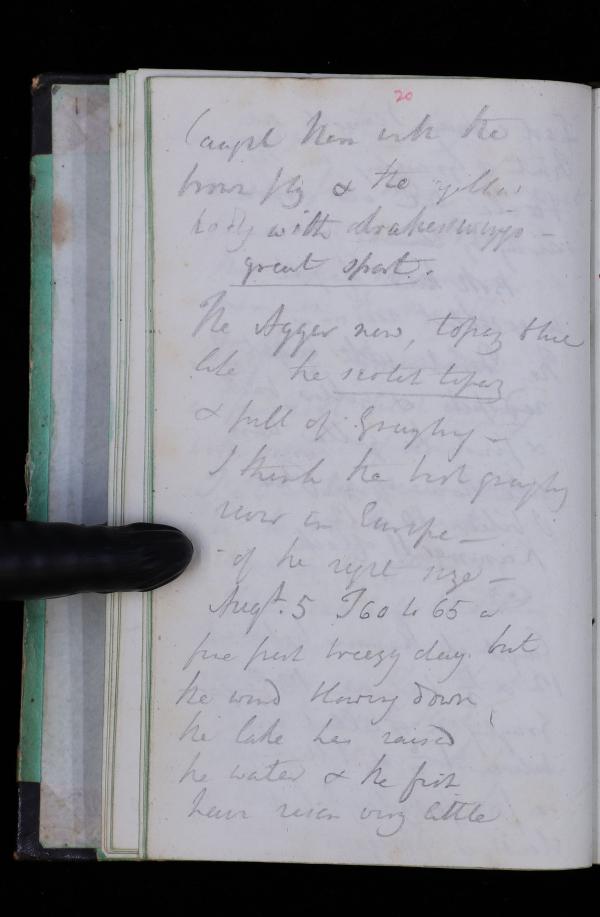 20
Caught them with the
brown fly & the yellow
body with drakes wings –
great sport.
The Agger now, topaz blue
like the scotch topaz
& full of Grayling –
I think the best grayling
river in Europe –
- of the right size –
Augt. 5 T 60 to 65 a
fine fresh breezy day. but
the wind blowing down
the lake has raised
the water & the fish
have risen very little